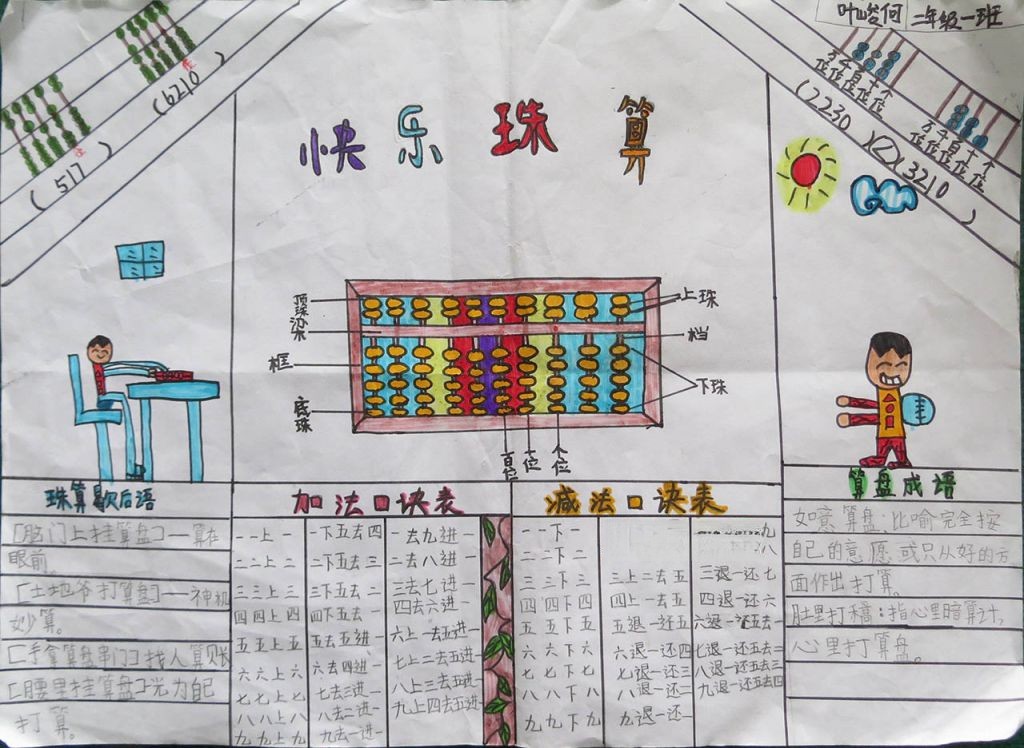 叶峻何 二年级一班
(6210)
(517)
万千百十个
位位位位位
(2230)
万千百十个
位位位位位
(3210)
快乐珠算
顶珠
梁
框
底珠
上珠
档
下珠
百位
十位
个位
珠算歇后语
[脑门上挂算盘]—算在
眼前。
[土地爷打算盘]—神机
妙算。
[手拿算盘串门]找人算账
[腰里挂算盘]光为自己
打算。
加法口诀表
一一上一
二二上二
三三上三
四四上四
五五上五
六六上六
七七上七
八八上八
九九上九
一下五去四
二下五去三
三下五去二
四下五去一
五去五进一
六去四进一
七去三进一
八去二进一
九去一进一
一去九进一
二去八进一
三去七进一
四去六进一
六上一去五进一
七上二去五进一
八上三去五进一
九上四去五进一
减法口诀表
一一下一
二二下二
三三下三
四四下四
五五下五
六六下六
七七下七
八八下八
九九下九
三上二去五
四上一去五
五退一还五
六退一还四
七退一还三
八退一还二
九退一还一
九
八
三退一还七
四退一还六
六退一还五去一
七退一还五去二
八退一还五去三
九退一还五去四
算盘成语
如意算盘：比喻完全按
自己的意愿或只从好的方
面作出打算。
肚里打稿：指心里暗算计，
心里打算盘。